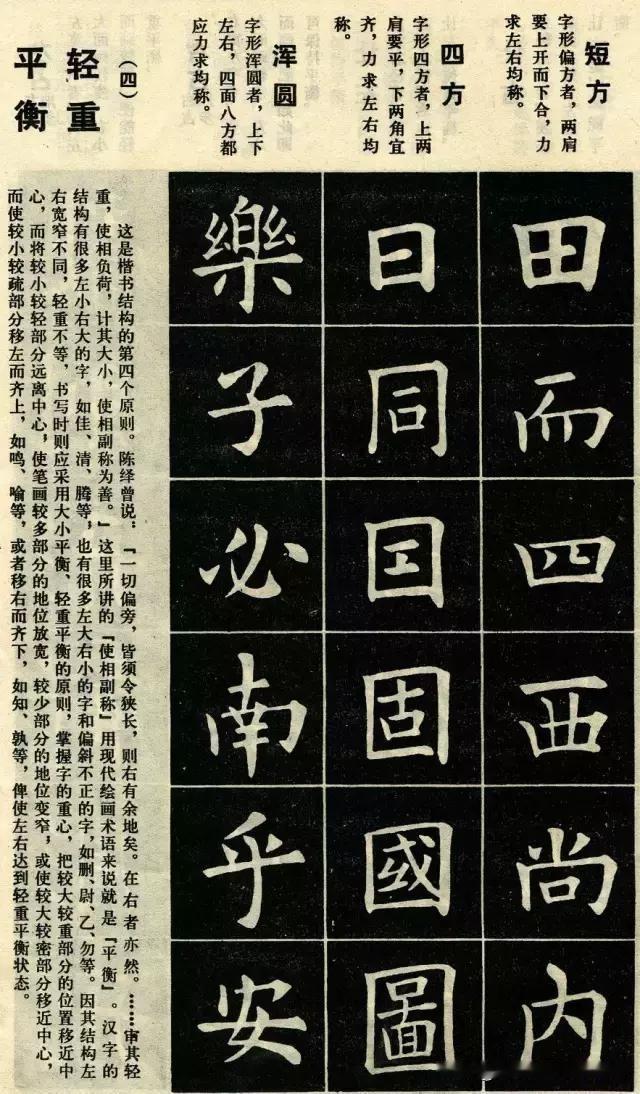 短方
字形偏方者，两肩
要上开而下合，力
求左右均称。
田
而
四
西
尚
内
四方
字形四方者，上两
肩要平，下两角宜
齐，力求左右均
称。
日
同
固
國
圖
浑圆
字形浑圆者，上下
左右，四面八方都
应力求均称。
樂
子
必
南
乎
安
（四）
轻重
平衡
这是楷书结构的第四个原则。陈绎曾说：『一切偏旁，皆须令狭长，则右有余地矣。在右者亦然。……审其轻
重，使相负荷，计其大小，使相副称为善。』这里所讲的『使相副称』用现代绘画术语来说就是『平衡』。汉字的
结构有很多左小右大的字，如佳、清、腾等，也有很多左大右小的字和偏斜不正的字，如删、尉、乙、勿等。因其结构左
右宽窄不同，轻重不等，书写时则应采用大小平衡、轻重平衡的原则，掌握字的重心，把较大较重部分的位置移近中
心，而将较小较轻部分远离中心，使笔画较多部分的地位放宽，较少部分的地位变窄，或使较大较密部分移近中心，
而使较小较疏部分移左而齐上，如鸣、喻等，或者移右而齐下，如知、孰等，俾使左右达到轻重平衡状态。